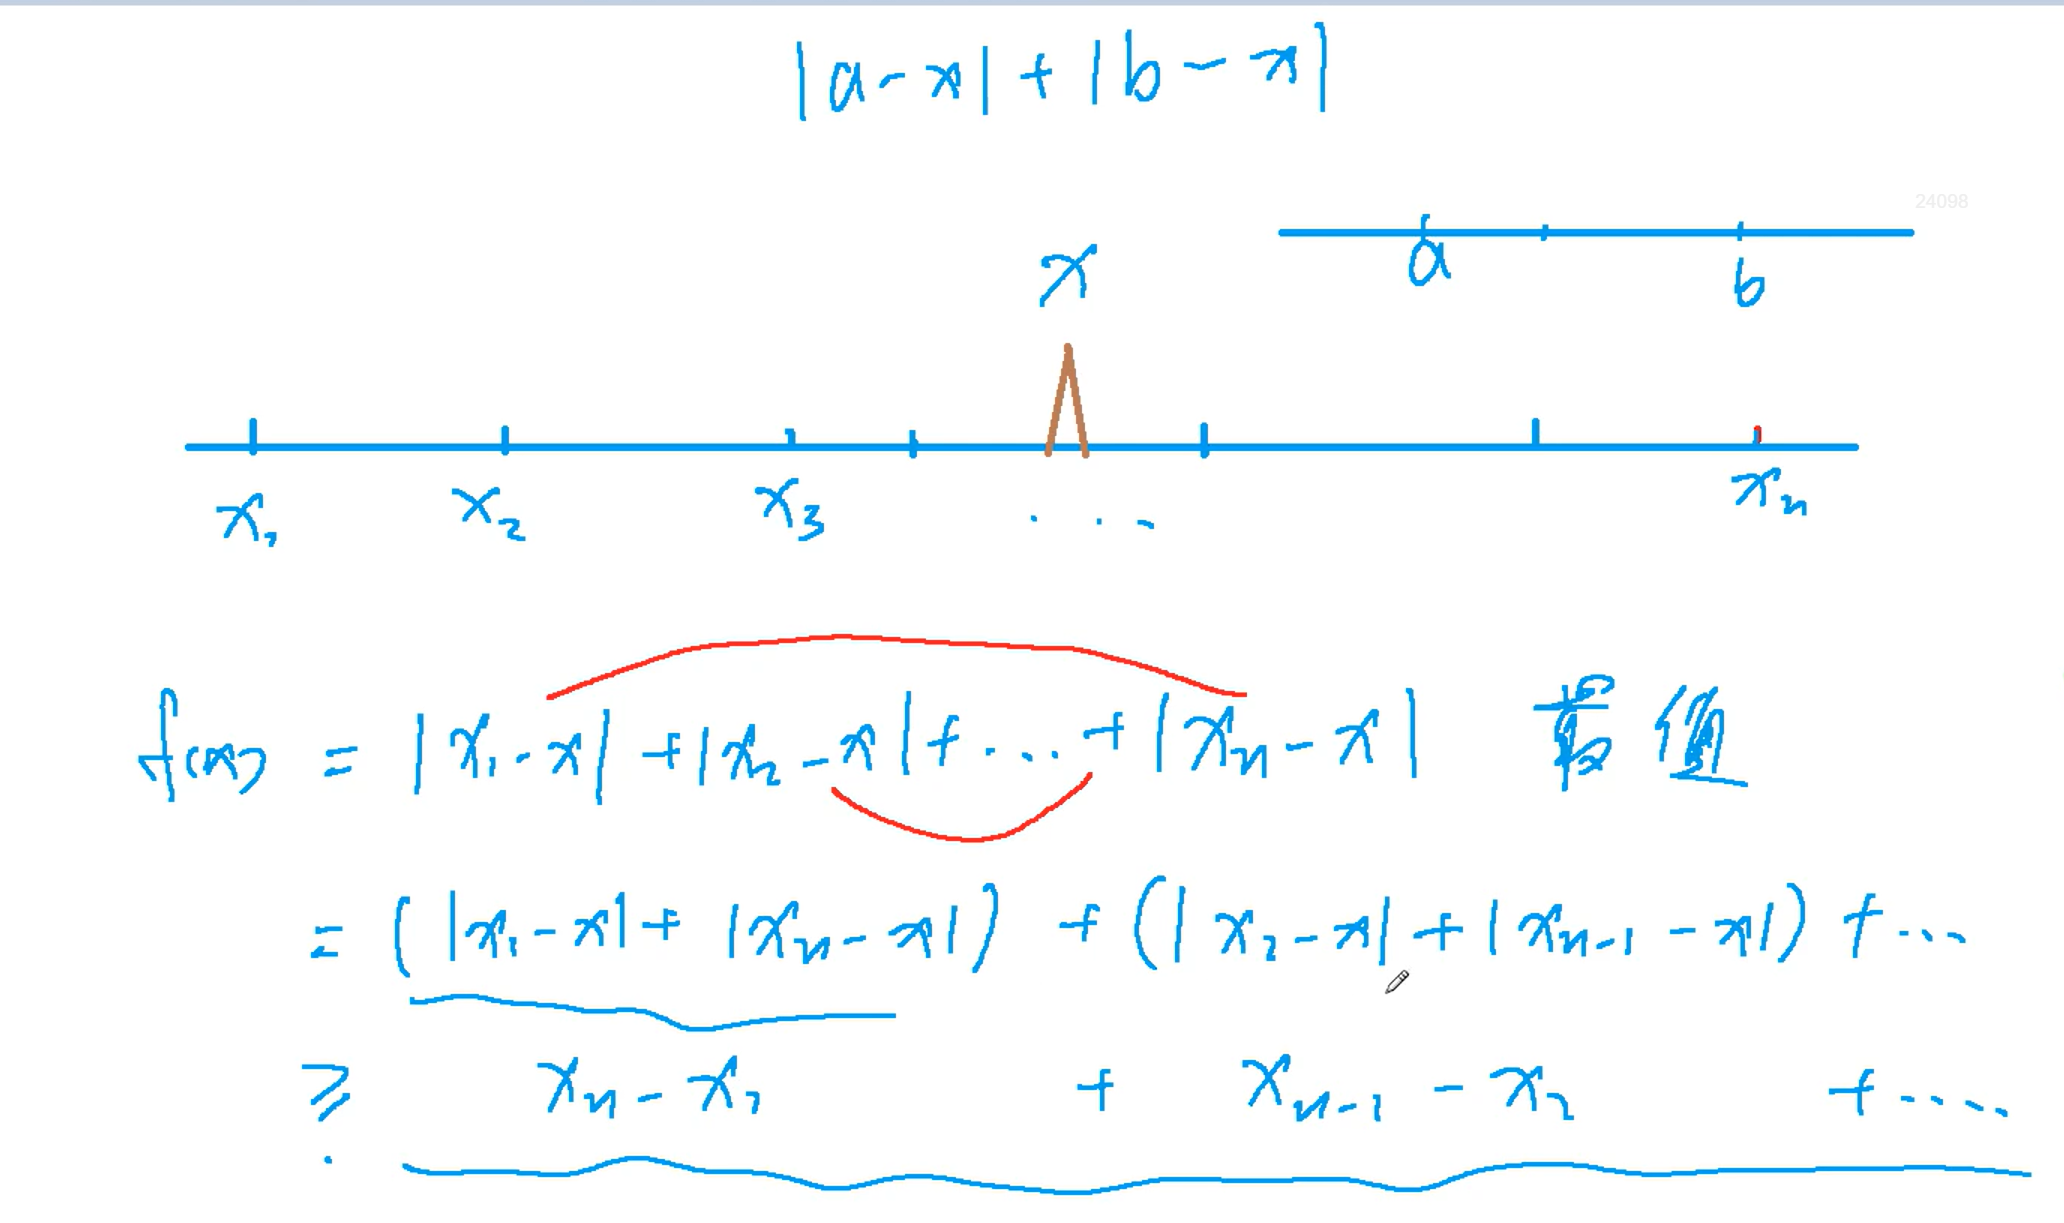 |a-x|+|b-x|
24098
x
a b
x₁ x₂ x₃ ... xₙ
f(x) = |x₁-x|+|x₂-x|+...+|xₙ-x| 最值
= (|x₁-x|+|xₙ-x|) + (|x₂-x|+|xₙ₋₁-x|)+...
≥ xₙ-x₁ + xₙ₋₁-x₂ +....